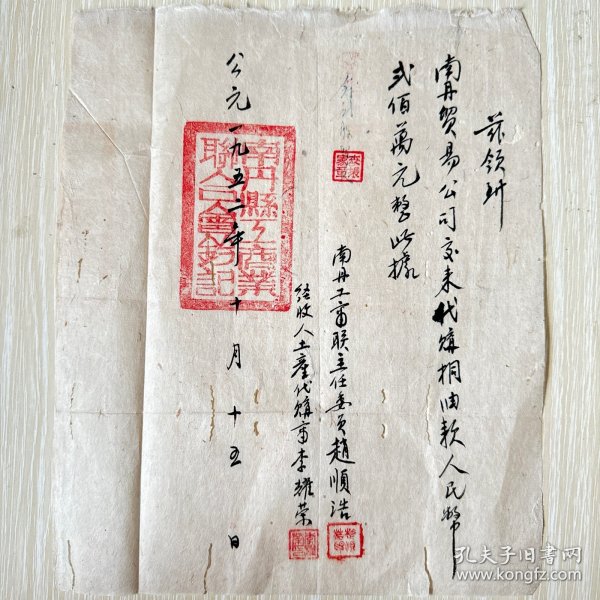 茲領到
南丹貿易公司交来代購桐油款人民幣
貳佰萬元整此據
南丹工商联主任委員趙順浩
经收人土產代購商李耀荣
公元一九五二年十月十五日
南丹縣工商業
聯
孔夫子旧书网
www.kongfz.com